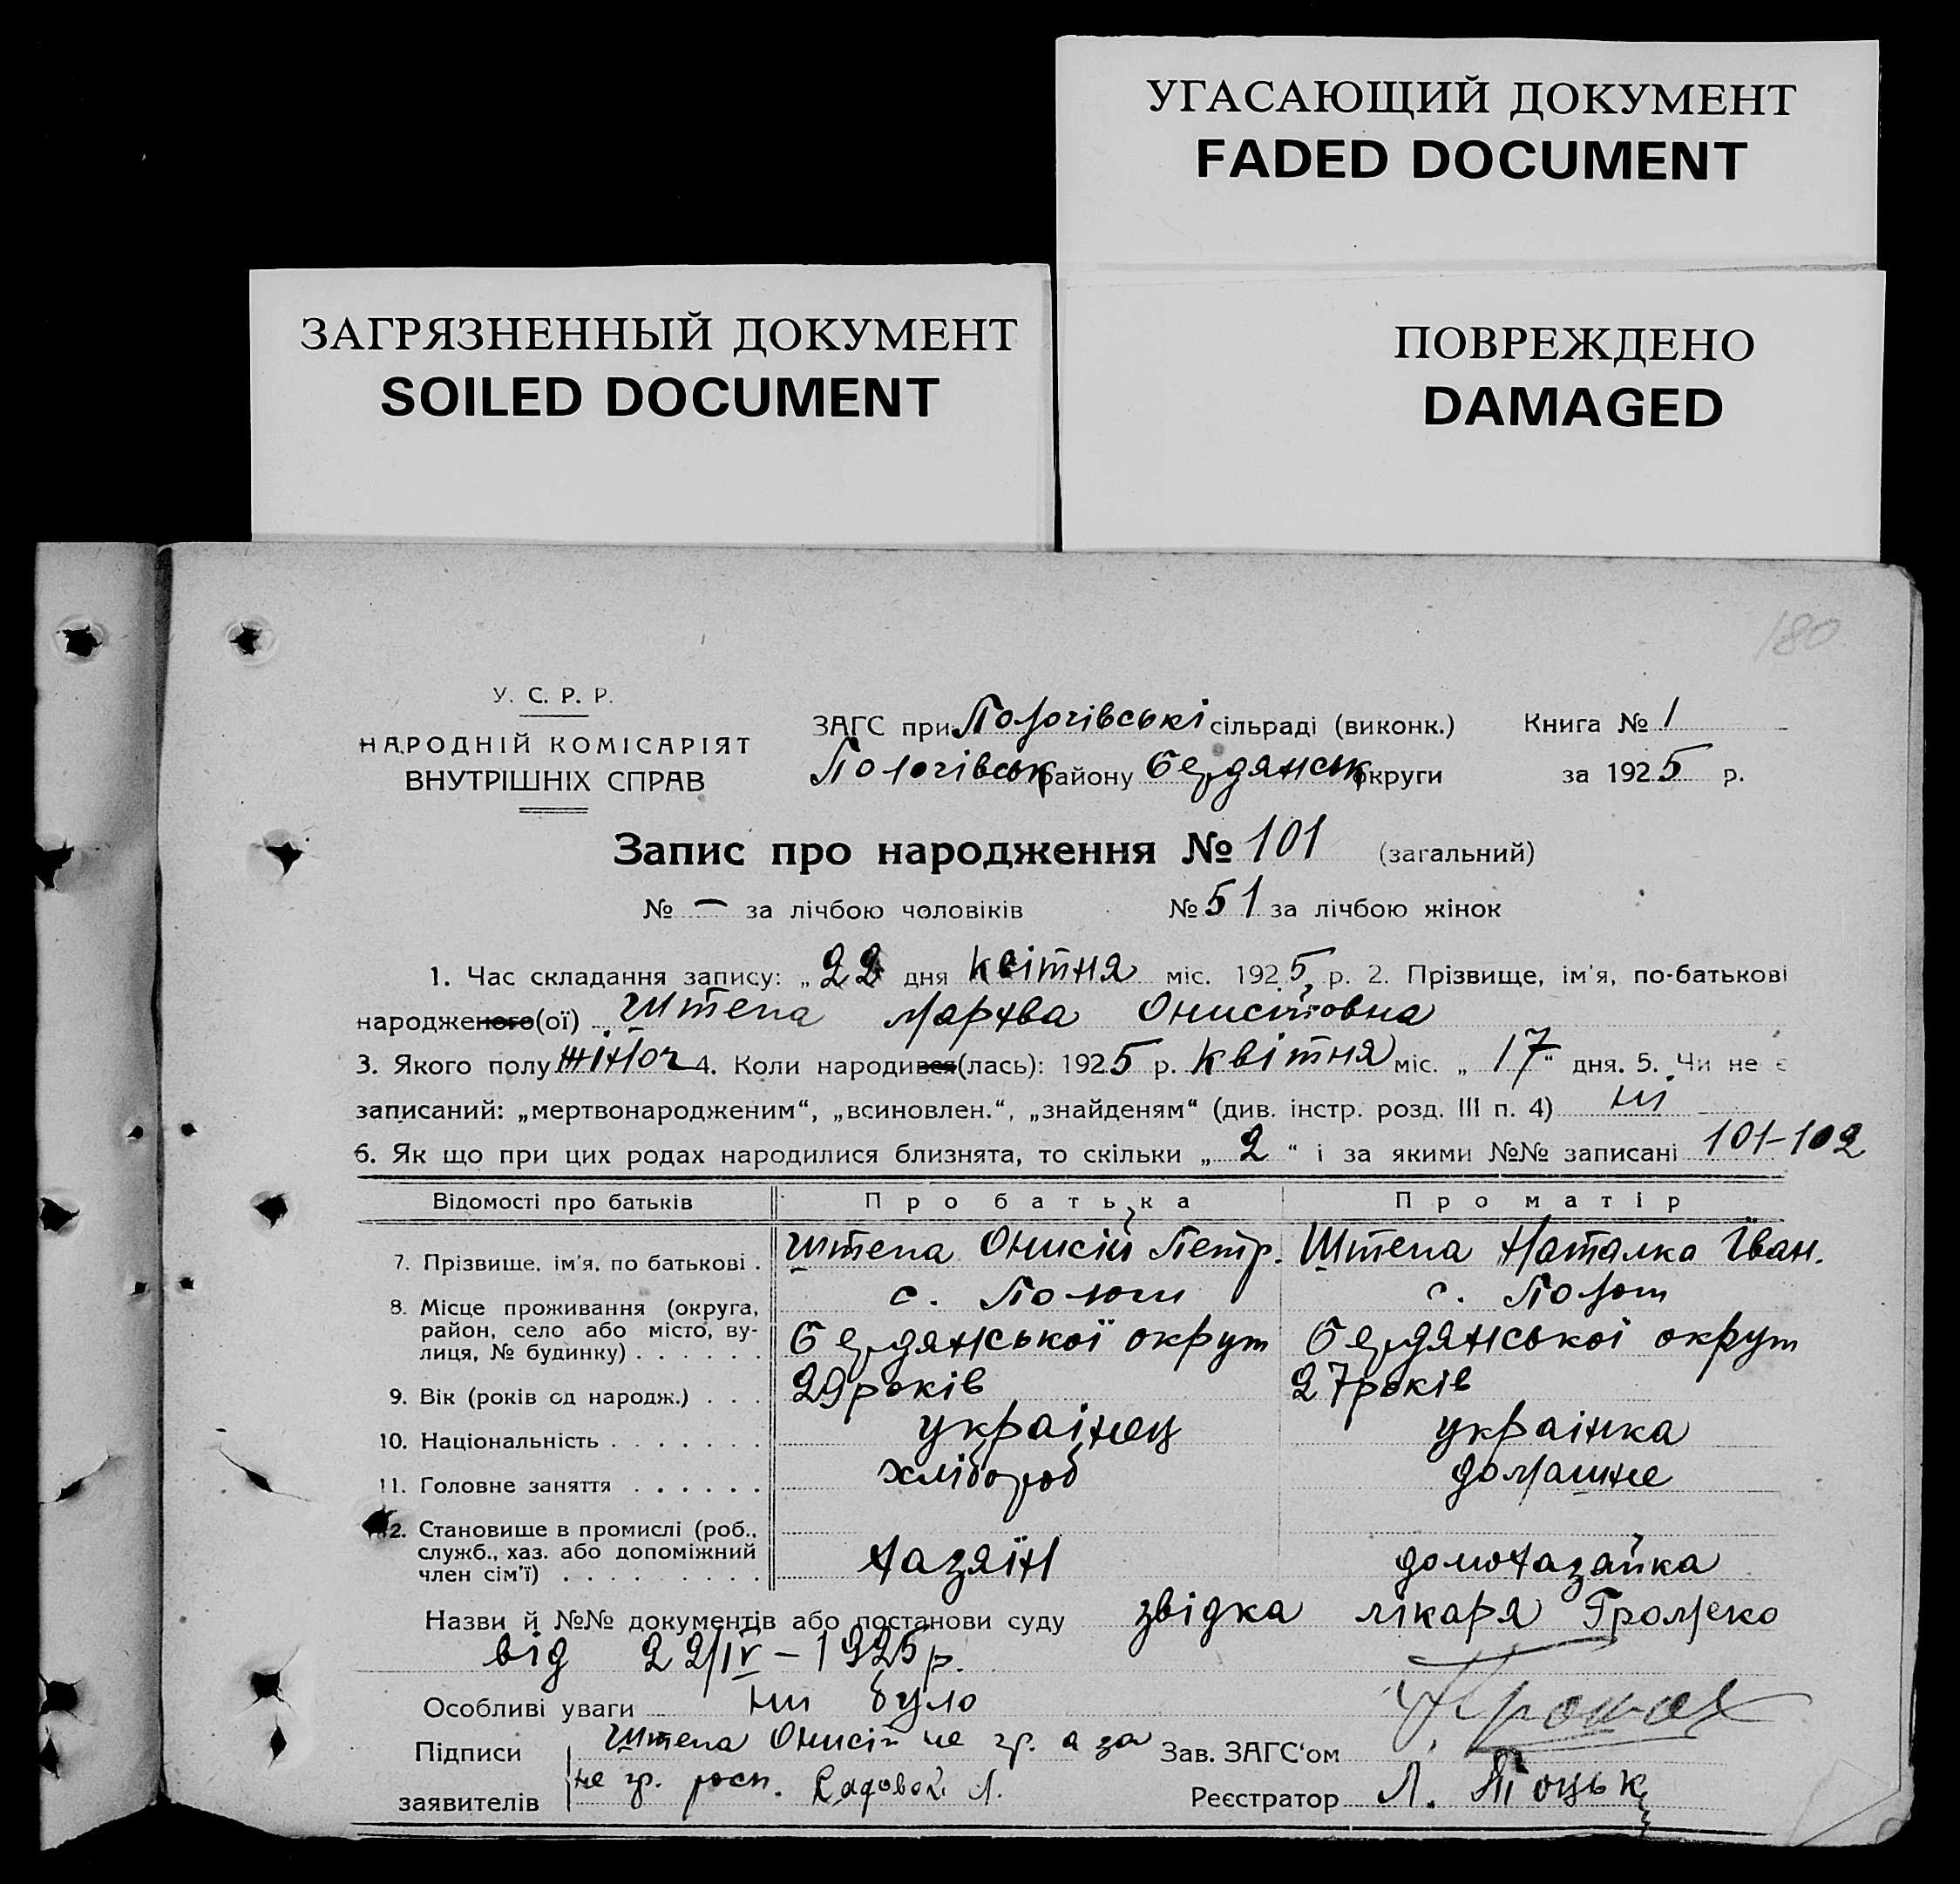 УГАСАЮЩИЙ ДОКУМЕНТ
FADED DOCUMENT
ЗАГРЯЗНЕННЫЙ ДОКУМЕНТ
SOILED DOCUMENT
ПОВРЕЖДЕНО
DAMAGED
180
У. С. Р. Р.
НАРОДНІЙ КОМІСАРІЯТ
ВНУТРІШНІХ СПРАВ
ЗАГС при Пологівські сільраді (виконк.) Книга № 1
Пологівськ району Бердянськ округи за 1925 р.
Запис про народження № 101 (загальний)
№ — за лічбою чоловіків № 51 за лічбою жінок
1. Час складання запису: „22 дня квітня міс. 1925 р. 2. Прізвище, ім'я, по-батькові
народженого(ої) Штепа Марфва Онисіївовна
3. Якого полу жіноч 4. Коли народився(лась): 1925 р. квітня міс. „17“ дня. 5. Чи не є
записаний: „мертвонародженим“, „всиновлен.“, „знайденям“ (див. інстр. розд. III п. 4) ні
6. Як що при цих родах народилися близнята, то скільки „2“ і за якими №№ записані 101-102
Відомості про батьків Про батька Про матір
7. Прізвище, ім'я, по батькові . Штепа Онисій Петр. Штепа Наталка Іван.
8. Місце проживання (округа, с. Пологи с. Пологи
район, село або місто, ву- Бердянської округи Бердянської округи
лиця, № будинку) . . . . . .
9. Вік (років од народж.) . . . 29 років 27 років
10. Національність . . . . . . . українец українка
11. Головне заняття . . . . . . хлібороб домашне
12. Становище в промислі (роб.,
служб., хаз. або допоміжний хазяїн домохазайка
член сім'ї) . . . . . . . . .
Назви й №№ документів або постанови суду звідка лікаря Громеко
від 22/IV – 1925 р.
Особливі уваги ни було
Підписи Штепа Онисій не гр. а за Зав. ЗАГС'ом
заявителів не гр. росп. Садовой Л. Реєстратор Л. Тоцьк